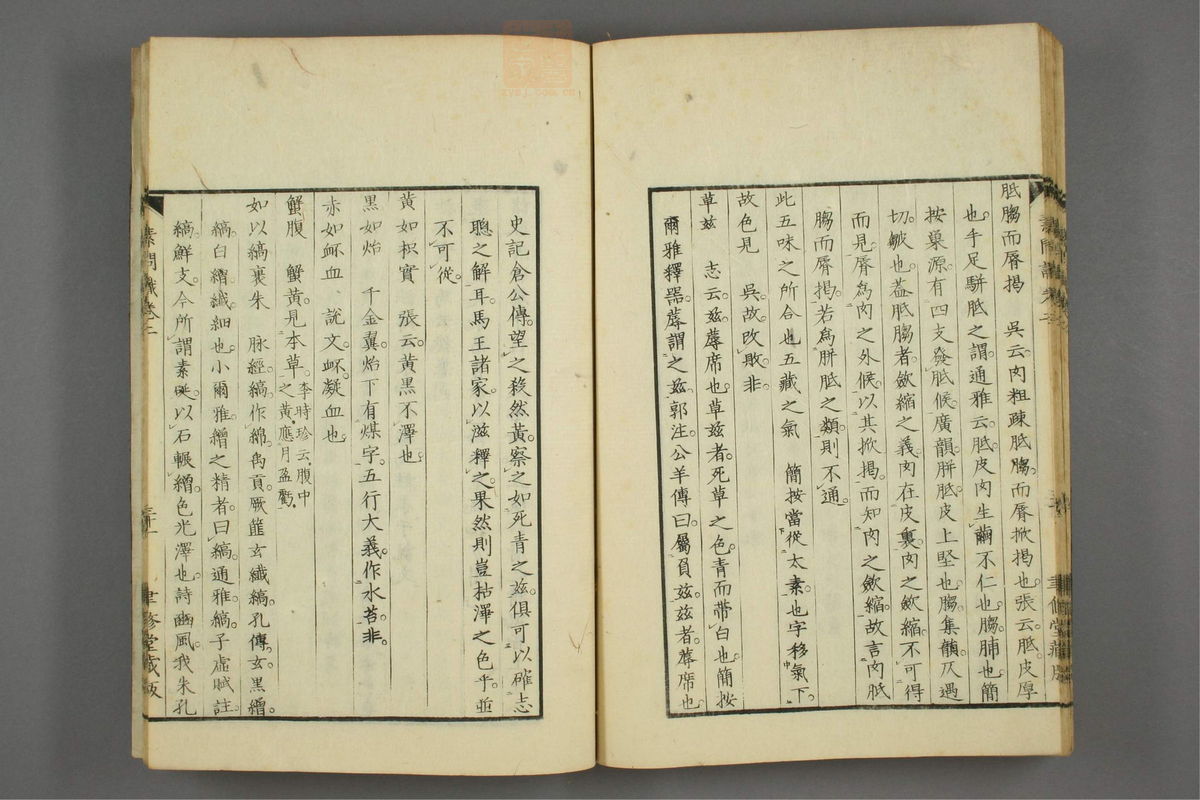 胝䐢而脣揭　吳云肉粗疎胝䐢而脣掀揭也張云胝皮厚
也手足駢胝之謂通雅云胝皮肉生繭不仁也䐢脯也簡
按巢源有四支發胝候廣韻胼胝皮上堅也䐢集韻仄遇
切皺也蓋胝䐢者斂縮之義肉在皮裏肉之斂縮不可得
而見脣爲肉之外候以其掀揭而知肉之斂縮故言肉胝
䐢而脣揭若爲胼胝之類則不通
此五味之所合也五藏之氣　簡按當從太素也字移氣下
故色見　吳故改敗非
草茲　志云茲蓐席也草茲者死草之色青而帶白也簡按
爾雅釋器蓐謂之茲郭注公羊傳曰屬負茲茲者蓐席也
史記倉公傳望之殺然黃察之如死青之茲俱可以確志
聰之解耳馬王諸家以滋釋之果然則豈枯澤之色乎並
不可從
黃如枳實　張云黃黑不澤也
黑如炲　千金翼炲下有煤字五行大義作水苔非
赤如衃血　說文衃凝血也
蟹腹　蟹黃見本草李時珍云腹中之黃應月盈虧
如以縞裹朱　脉經縞作綿禹貢厥篚玄纖縞孔傳玄黑繒
縞白繒纖細也小爾雅繒之精者曰縞通雅縞子虛賦註
縞鮮支今所謂素㲲以石輾繒色光澤也詩豳風我朱孔
素問識卷二
三十一
聿修堂藏版
zysj.com.cn